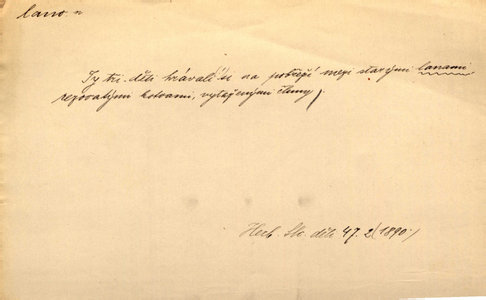 lano n
Ty tři děti hrávali si na pobřeží mezi starými lanami
rezovatými kotvami, vytaženými čluny.
Herb. Sle. děl. 47. 2 (1890)